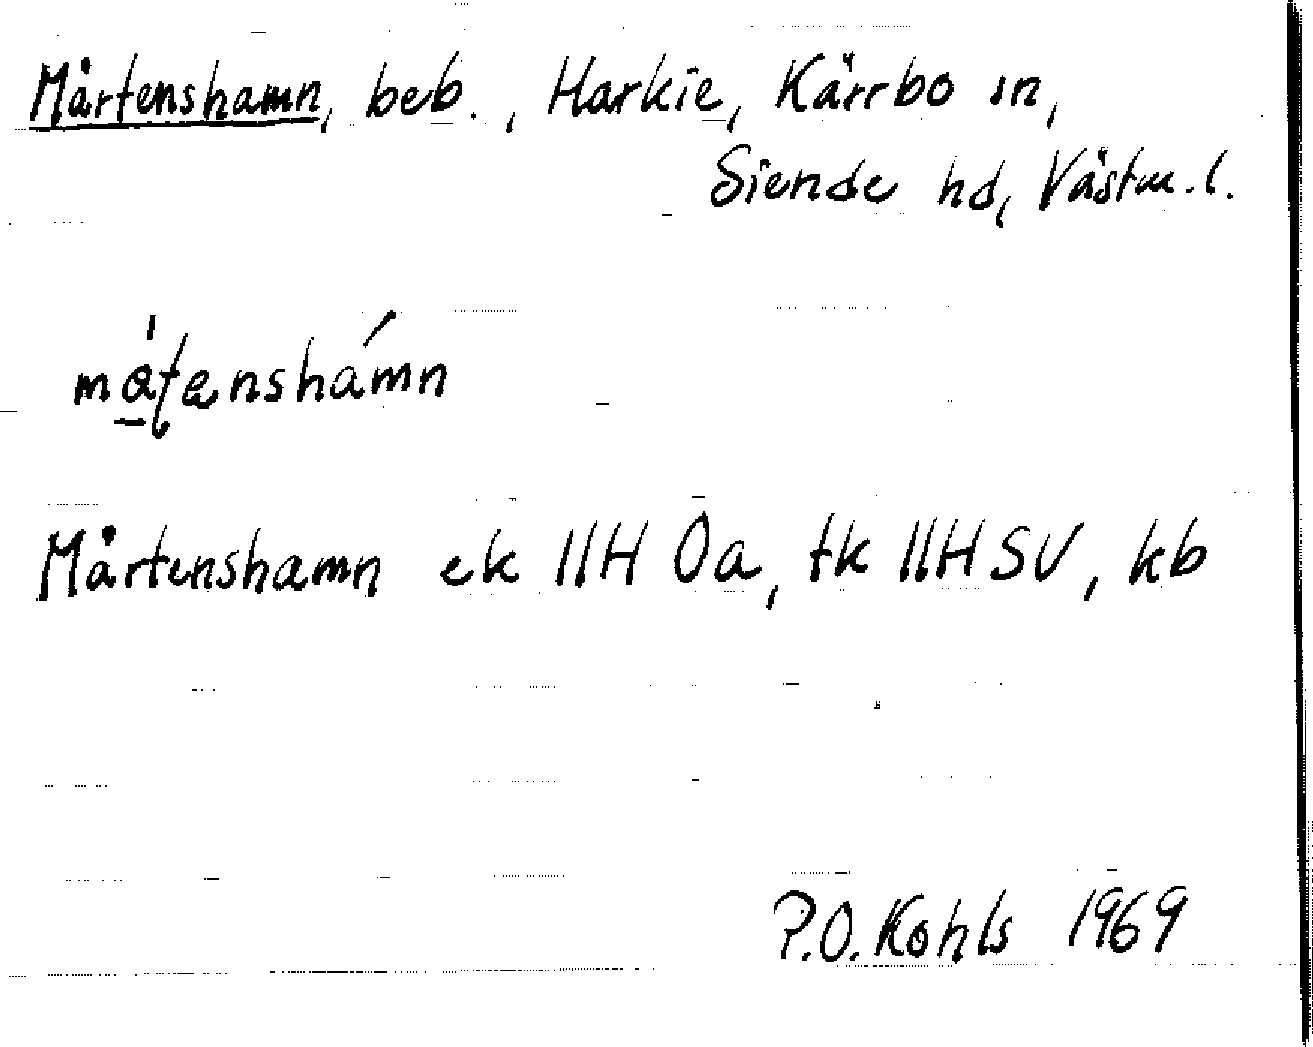 Mårtenshamn, beb., Harkie, Kärrbo sn,
Siende hd, Västm.l.
må̱ʈenshámn
Mårtenshamn ek 11H Öa, tk 11HSV, kb
P.O. Kohls 1969